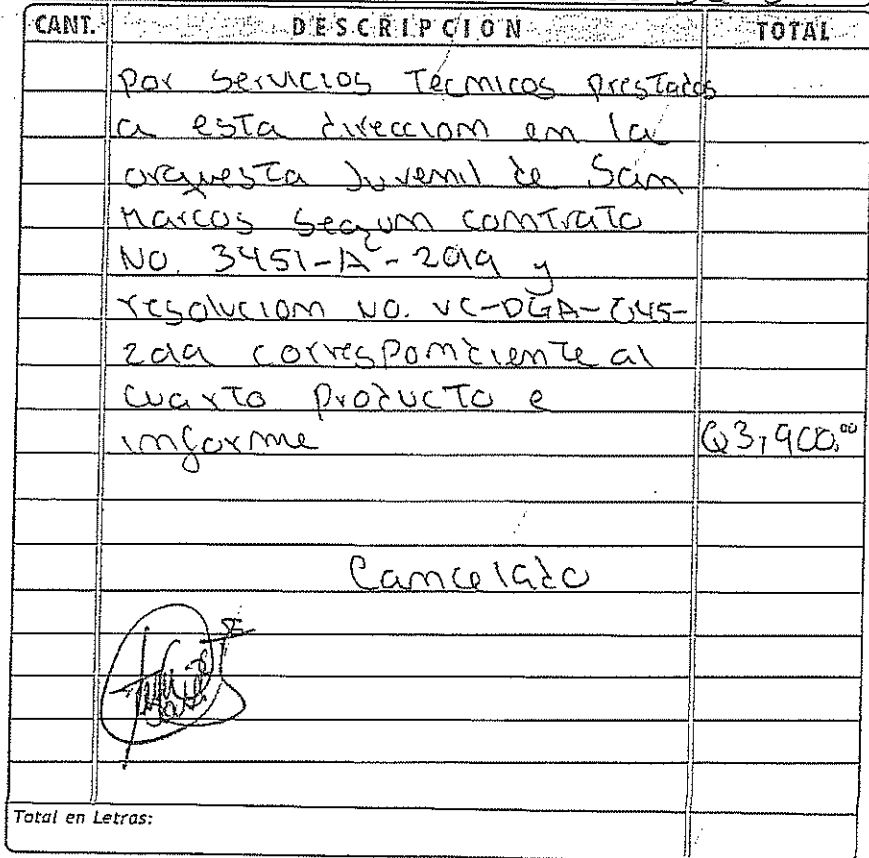 CANT. DESCRIPCIÓN TOTAL
por servicios Técnicos prestados
a esta dirección en la
orquesta Juvenil de San
Marcos según contrato
NO. 3451-A-2019 y
resolución NO. VC-DGA-045-
2019 correspondiente al
cuarto producto e
informe Q3,900.00
Cancelado
Total en Letras: